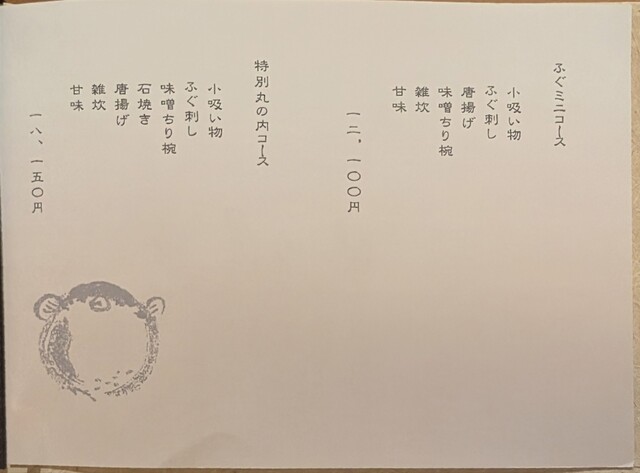 ふぐミニコース
小吸い物
ふぐ刺し
唐揚げ
味噌ちり椀
雑炊
甘味
一二、一〇〇円
特別丸の内コース
小吸い物
ふぐ刺し
味噌ちり椀
石焼き
唐揚げ
雑炊
甘味
一八、一五〇円